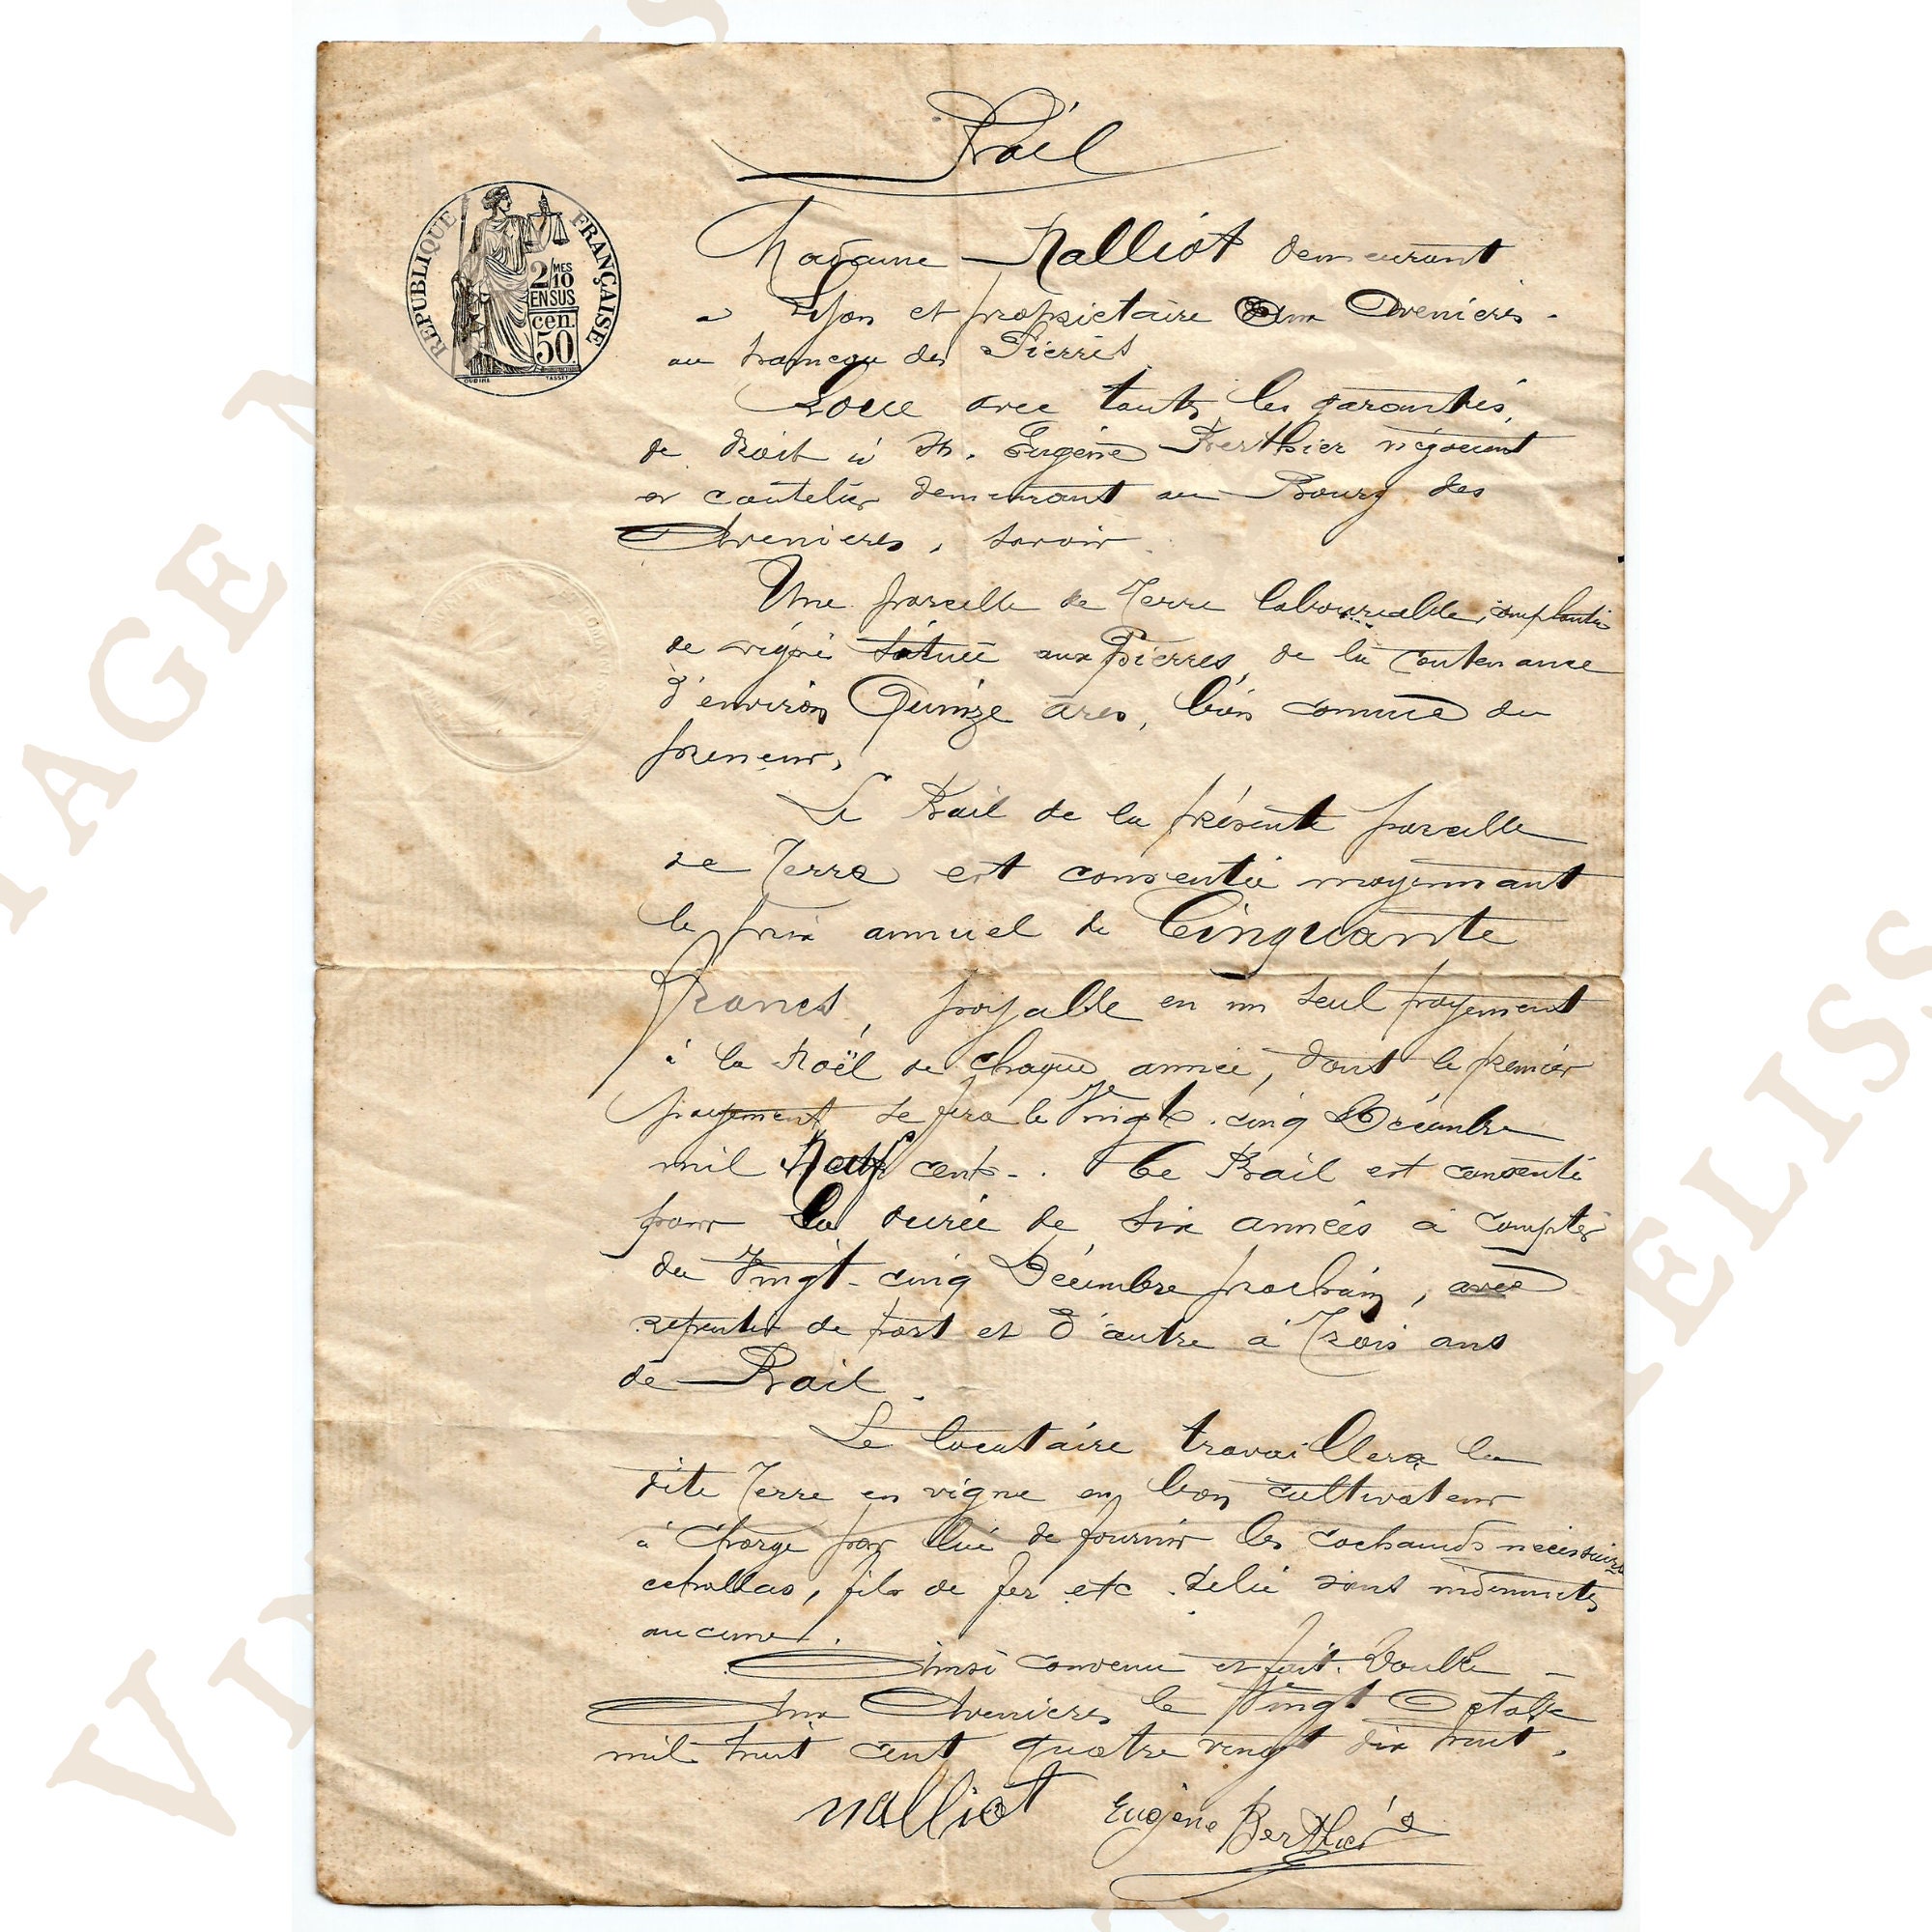 Bail
RÉPUBLIQUE FRANÇAISE
2/10 MES
EN SUS
cen.
50
OUDINÉ TASSET
Madame Nalliot demeurant
a Lyon et propriétaire Aux Avenières
au hameau des Pierres
Loue avec touts les garanties
de droit à M. Eugène Berthier négociant
et coutelier demeurant au Bourg des
Avenières, savoir
Une parcelle de Terre labourable, complantée
de vigne située aux Pierres, de la contenance
d'environ Quinze ares, bien connue du
preneur,
Le Bail de la présente parcelle
de Terre est consentie moyennant
le prix annuel de Cinquante
francs, payable en un seul payement
à la Noël de chaque année, dont le premier
payement se fera le Vingt-cinq Décembre
mil Neuf cent. Ce Bail est consenti
pour la durée de six années à compter
du Vingt-cinq Décembre prochain, avec
repentir de part et d'autre à Trois ans
de Bail.
Le locataire travaillera la
dite Terre en vigne en bon cultivateur
à charge par lui de fournir les nécessaires
fils de fer etc. sans indemnités
aucune.
Ainsi convenu et fait Double
Aux Avenières le Vingt Octobre
mil huit cent quatre vingt dix huit.
nalliot Eugène Berthier
VINTAGE